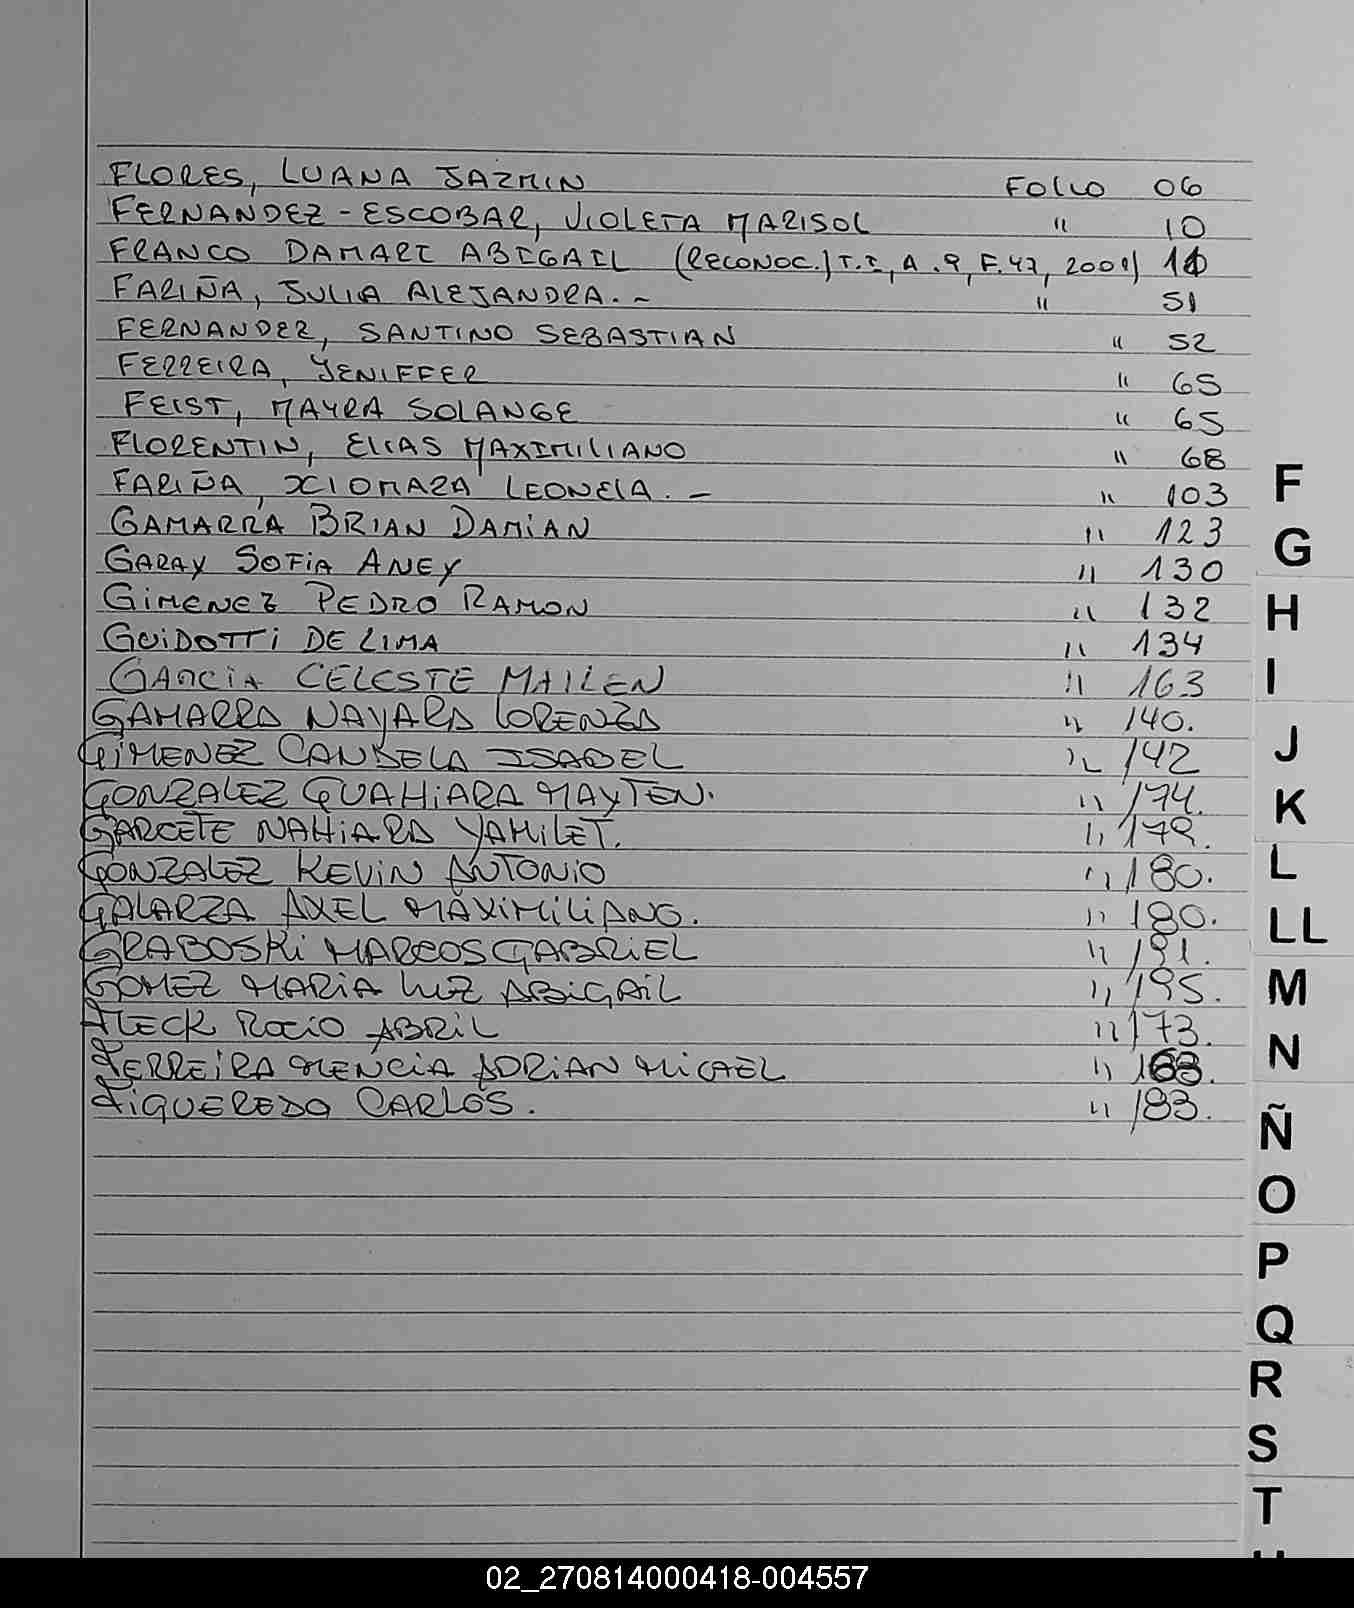 FLORES, LUANA JAZMIN FOLIO 06
FERNANDEZ-ESCOBAR, VIOLETA MARISOL " 10
FRANCO DAMARI ABIGAIL (RECONOC.) T.I, A.9, F.47, 2001)
FARIÑA, JULIA ALEJANDRA.- " 51
FERNANDEZ, SANTINO SEBASTIAN " 52
FERREIRA, YENIFFER " 65
FEIST, MAYRA SOLANGE " 65
FLORENTIN, ELIAS MAXIMILIANO " 68
FARIÑA, XIOMARA LEONELA.- " 103
GAMARRA BRIAN DAMIAN " 123
GARAY SOFIA ANEY " 130
GIMENEZ PEDRO RAMON " 132
GUIDOTTI DE LIMA " 134
GARCIA CELESTE MAILEN " 163
GAMARRA NAYARA LORENZA " 140.
GIMENEZ CANDELA ISABEL " 142
GONZALEZ GUAHIARA MAYTEN. " 174.
GARCETE NAHIARA YAMILET. "
GONZALEZ KEVIN ANTONIO " 180.
GALARZA AXEL MAXIMILIANO. " 180.
GRABOSKI MARCOS GABRIEL " 191.
GOMEZ MARIA LUZ ABIGAIL " 195.
FLECK ROCIO ABRIL " 173.
FERREIRA MENCIA ADRIAN MICAEL "
FIGUEREDO CARLOS. " 183.
F
G
H
I
J
K
L
LL
M
N
Ñ
O
P
Q
R
S
T
02_270814000418-004557